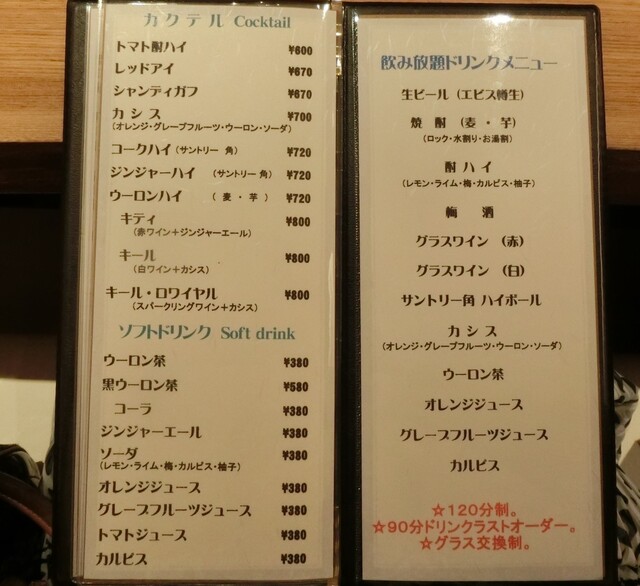 カクテル Cocktail
トマト酎ハイ ¥600
レッドアイ ¥670
シャンディガフ ¥670
カシス ¥700
(オレンジ・グレープフルーツ・ウーロン・ソーダ)
コークハイ (サントリー 角) ¥720
ジンジャーハイ (サントリー 角) ¥720
ウーロンハイ (麦・芋) ¥720
キティ ¥800
(赤ワイン+ジンジャーエール)
キール ¥800
(白ワイン+カシス)
キール・ロワイヤル ¥800
(スパークリングワイン+カシス)
ソフトドリンク Soft drink
ウーロン茶 ¥380
黒ウーロン茶 ¥580
コーラ ¥380
ジンジャーエール ¥380
ソーダ ¥380
(レモン・ライム・梅・カルピス・柚子)
オレンジジュース ¥380
グレープフルーツジュース ¥380
トマトジュース ¥380
カルピス ¥380
飲み放題ドリンクメニュー
生ビール (エビス樽生)
焼酎 (麦・芋)
(ロック・水割り・お湯割)
酎ハイ
(レモン・ライム・梅・カルピス・柚子)
梅酒
グラスワイン (赤)
グラスワイン (白)
サントリー角 ハイボール
カシス
(オレンジ・グレープフルーツ・ウーロン・ソーダ)
ウーロン茶
オレンジジュース
グレープフルーツジュース
カルピス
☆120分制。
☆90分ドリンクラストオーダー。
☆グラス交換制。